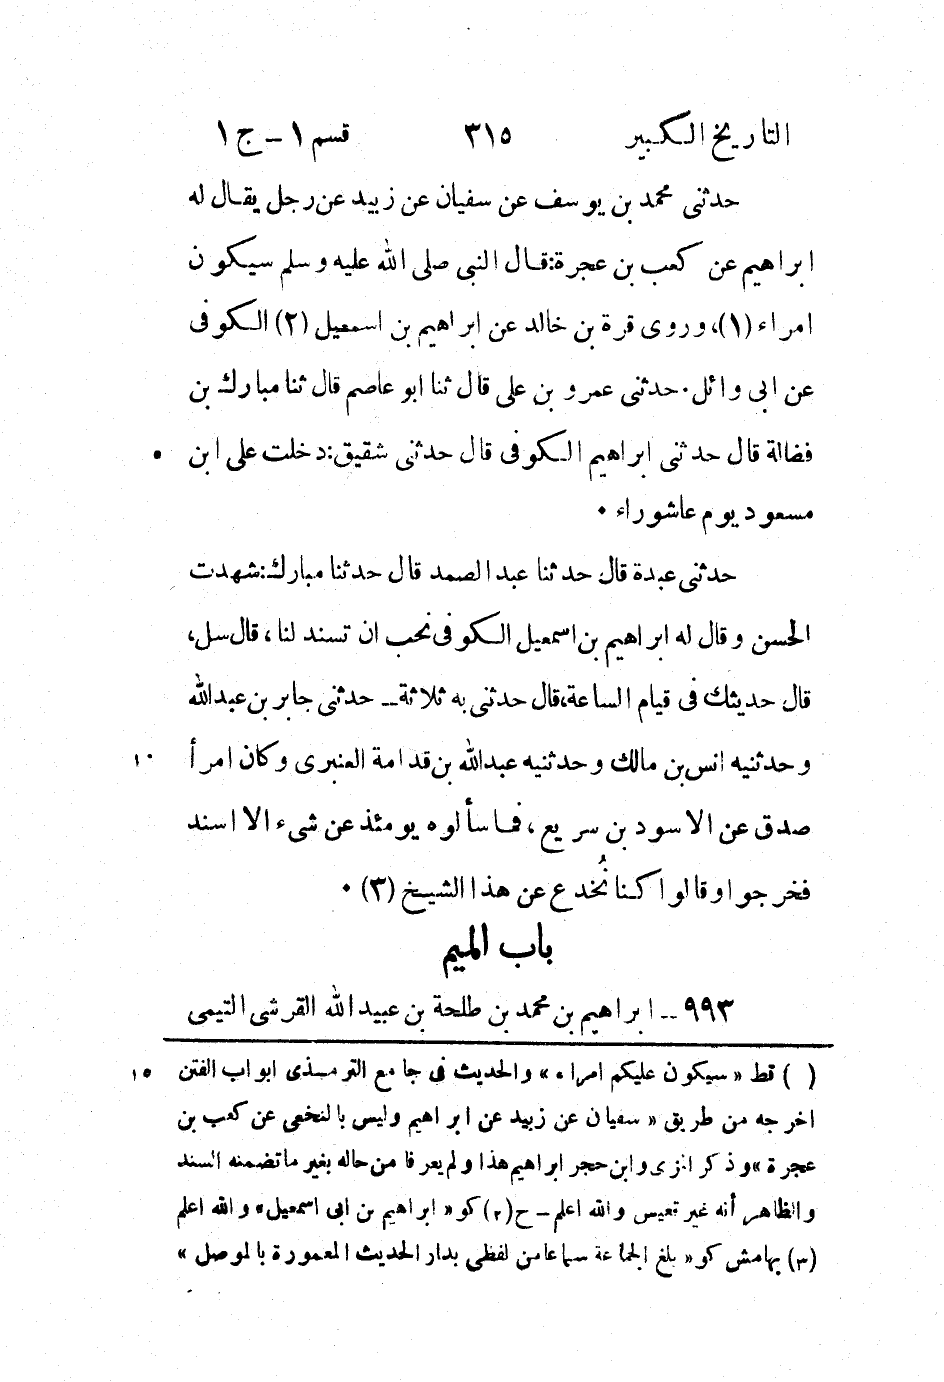 التاريخ الكبير ٣١٥ قسم ١ - ج ١
حدثنى محمد بن يوسف عن سفيان عن زبيد عن رجل يقال له
ابراهيم عن كعب بن عجرة: قال النبى صلى الله عليه وسلم سيكون
امراء (١)، وروى قرة بن خالد عن ابراهيم بن اسمعيل (٢) الكوفى
عن ابى وائل. حدثنى عمرو بن على قال ثنا ابو عاصم قال ثنا مبارك بن
فضالة قال حدثنى ابراهيم الكوفى قال حدثنى شقيق: دخلت على ابن ٥
مسعود يوم عاشوراء.
حدثنى عبدة قال حدثنا عبد الصمد قال حدثنا مبارك: شهدت
الحسن وقال له ابراهيم بن اسمعيل الكوفى نحب ان تسند لنا، قال سل،
قال حديثك فى قيام الساعة، قال حدثنى به ثلاثة ــ حدثنى جابر بن عبدالله
وحدثنيه انس بن مالك وحدثنيه عبدالله بن قدامة العنبرى وكان امرأ ١٠
صدق عن الاسود بن سريع، فما سألوه يومئذ عن شىء الا اسند
فخرجوا وقالوا كنا نُخدع عن هذا الشيخ (٣).
باب الميم
٩٩٣ ــ ابراهيم بن محمد بن طلحة بن عبيد الله القرشى التيمى
( ) قط « سيكون عليكم امراء » والحديث فى جامع الترمذى ابواب الفتن ١٥
اخرجه من طريق « سفيان عن زبيد عن ابراهيم وليس بالنخعى عن كعب بن
عجرة » وذكر المزى وابن حجر ابراهيم هذا ولم يعرفا من حاله بغير ما تضمنه السند
والظاهر أنه غير والله اعلم - ح (٢) كو « ابراهيم بن ابى اسمعيل » والله اعلم
(٣) بهامش كو « بلغ الجماعة سماعا من لفظى بدار الحديث المعمورة بالموصل »